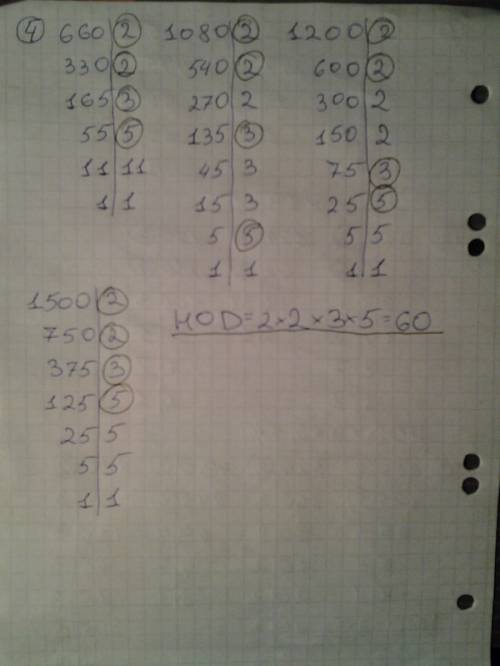 ④ 660|2 1080|2 1200|2
330|2 540|2 600|2
165|3 270|2 300|2
55|5 135|3 150|2
11|11 45|3 75|3
1|1 15|3 25|5
5|5 5|5
1|1 1|1
1500|2
750|2
375|3
125|5
25|5
5|5
1|1
НОD=2×2×3×5=60